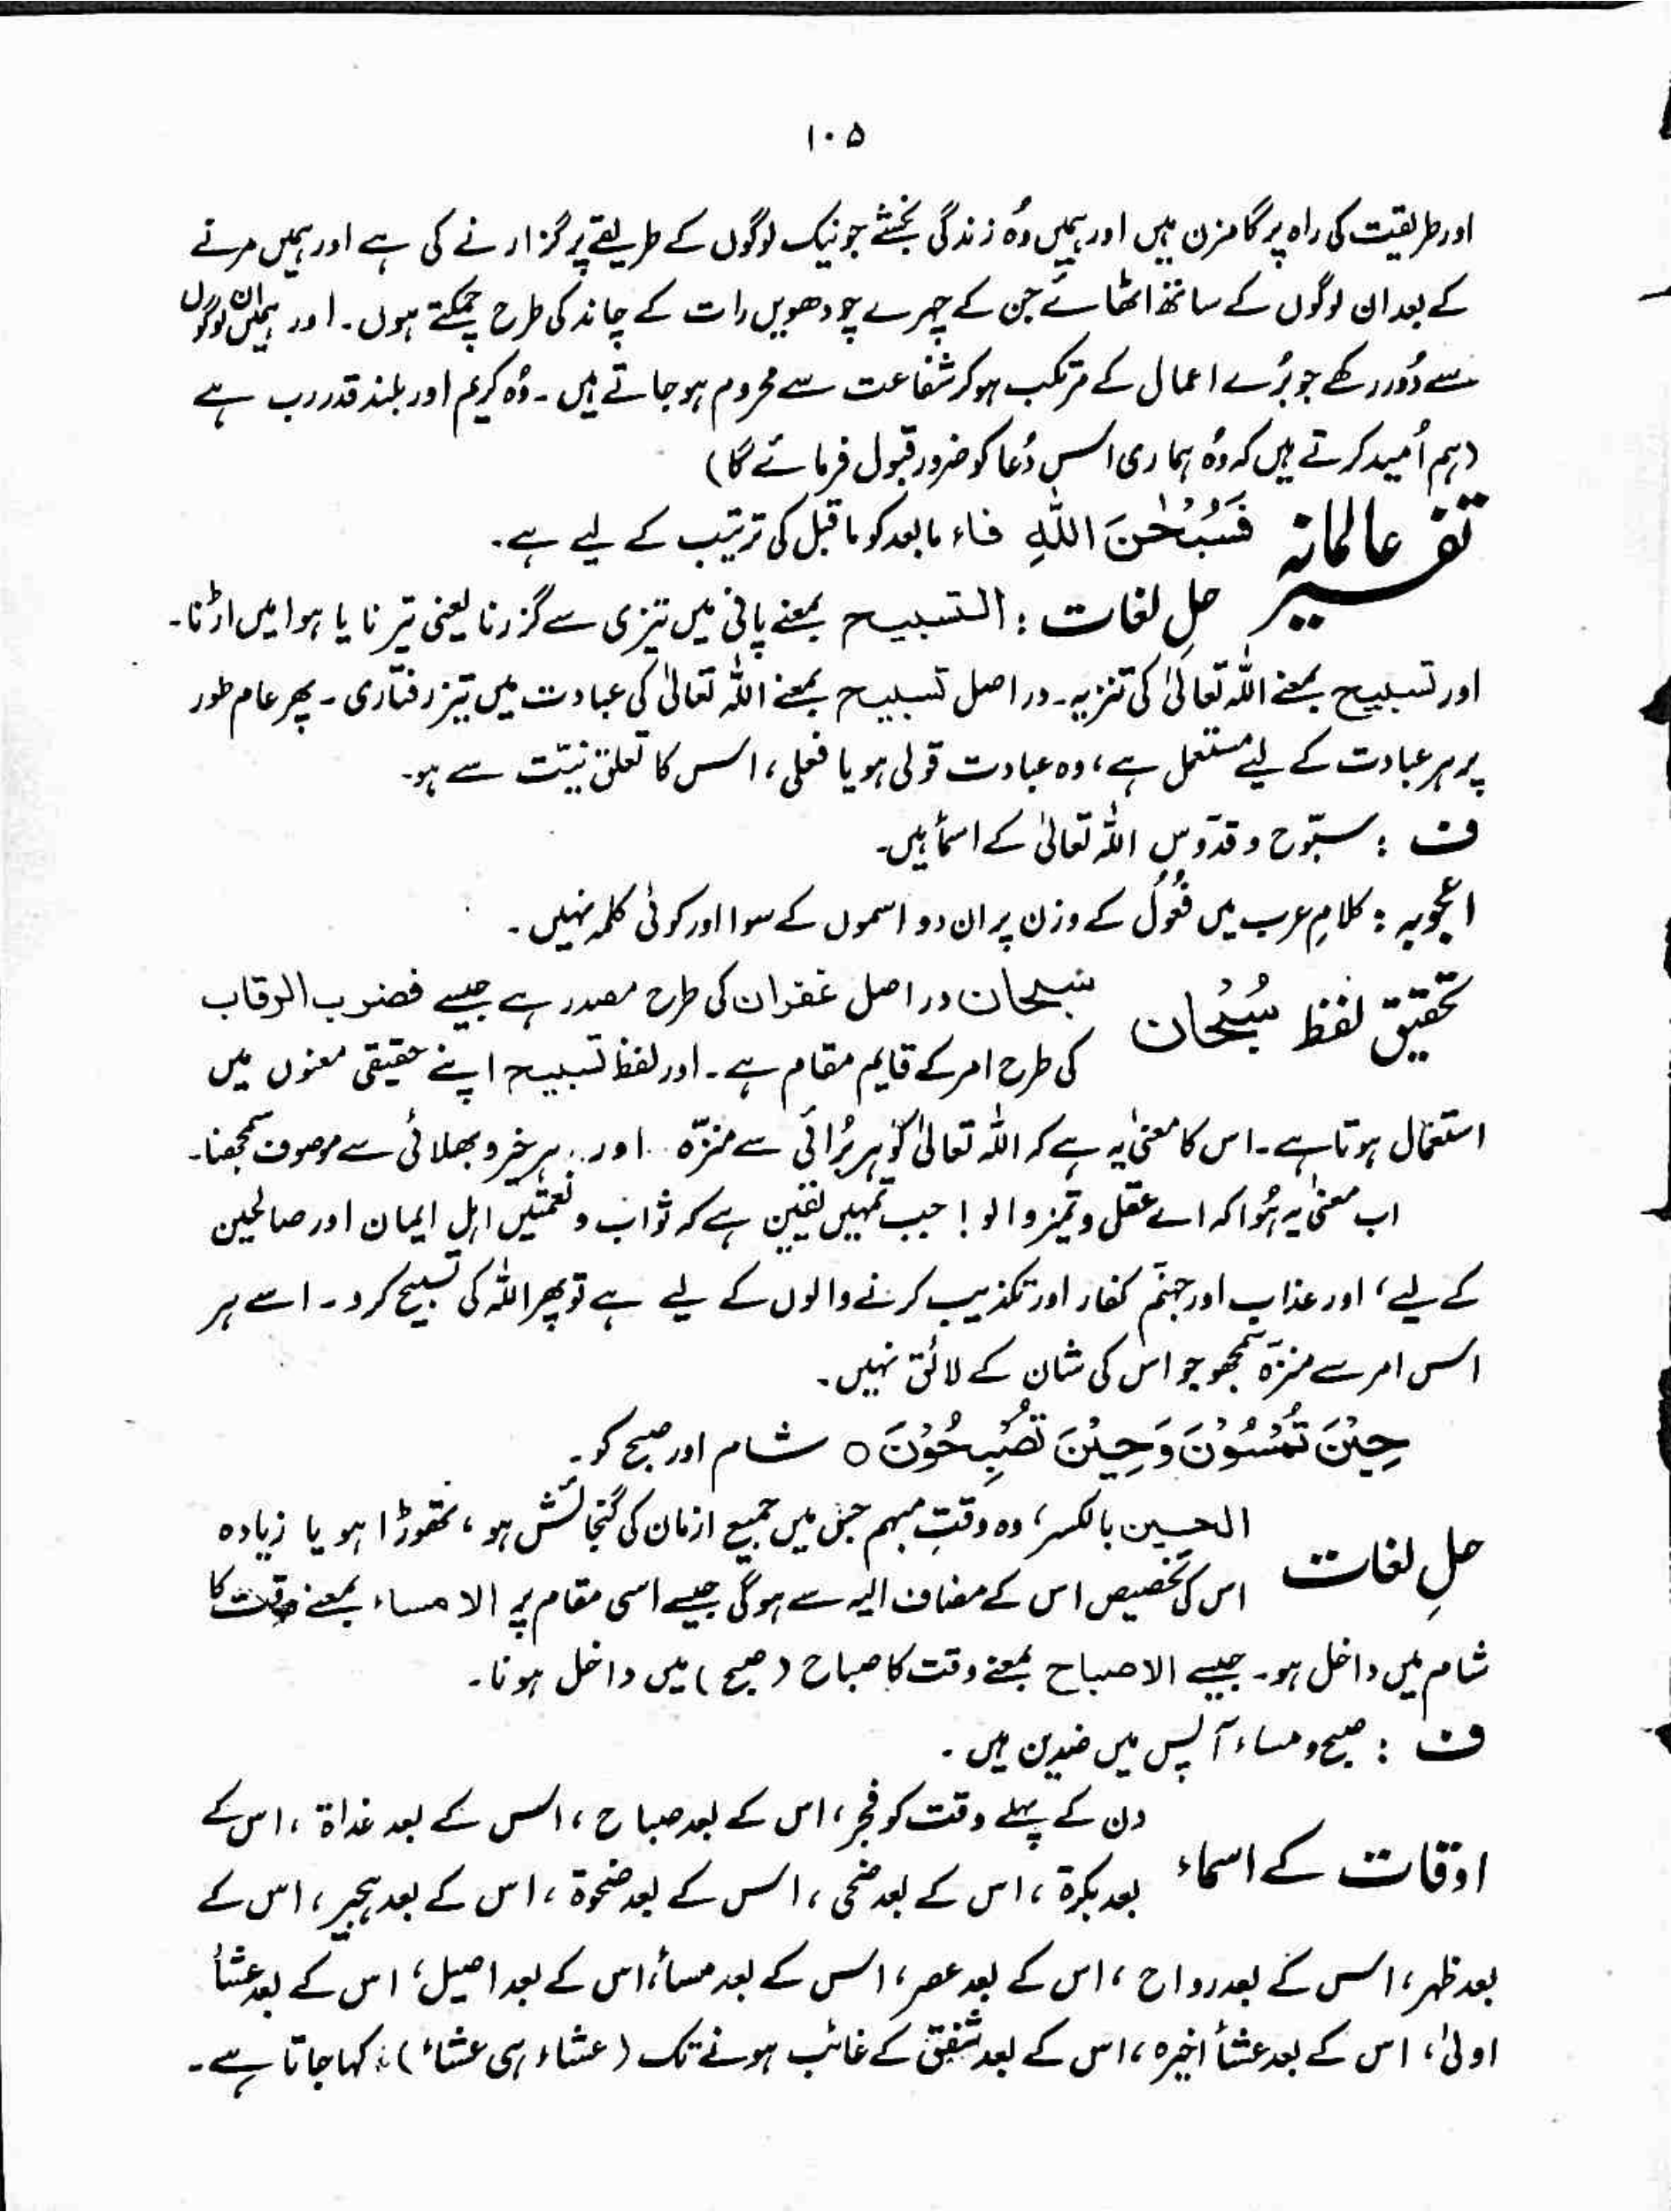 ۱۰۵
اور طریقت کی راہ پر گامزن ہیں اور ہمیں وُہ زندگی بخشے جو نیک لوگوں کے طریقے پر گزارنے کی ہے اور ہمیں مرنے
کے بعد ان لوگوں کے ساتھ اٹھائے جن کے چہرے چودھویں رات کے چاند کی طرح چمکتے ہوں۔ اور ہمیں ان لوگوں
سے دُور رکھے جو بُرے اعمال کے مرتکب ہو کر شفاعت سے محروم ہو جاتے ہیں۔ وُہ کریم اور بلند قدر رب ہے
(ہم اُمید کرتے ہیں کہ وُہ ہماری اس دُعا کو ضرور قبول فرمائے گا)
تفسیر عالمانہ فَسُبْحٰنَ اللّٰهِ فاء مابعد کو ماقبل کی ترتیب کے لیے ہے۔
حلِ لغات : التسبیح بمعنے پانی میں تیزی سے گزرنا یعنی تیرنا یا ہوا میں اڑنا۔
اور تسبیح بمعنے اللہ تعالیٰ کی تنزیہ۔ دراصل تسبیح بمعنے اللہ تعالیٰ کی عبادت میں تیز رفتاری۔ پھر عام طور
پر ہر عبادت کے لیے مستعمل ہے، وہ عبادت قولی ہو یا فعلی، اس کا تعلق نیّت سے ہو۔
ف : سبّوح و قدّوس اللہ تعالیٰ کے اسمأ ہیں۔
اعجوبہ : کلامِ عرب میں فُعُول کے وزن پر ان دو اسموں کے سوا اور کوئی کلمہ نہیں۔
تحقیق لفظ سُبْحان سبحان دراصل غفران کی طرح مصدر ہے جیسے فضرب الرقاب
کی طرح امر کے قایم مقام ہے۔ اور لفظ تسبیح اپنے حقیقی معنوں میں
استعمال ہوتا ہے۔ اس کا معنیٰ یہ ہے کہ اللہ تعالیٰ کو ہر بُرائی سے منزّہ اور ہر خیر و بھلائی سے موصوف سمجھنا۔
اب معنیٰ یہ ہُوا کہ اے عقل و تمیز والو! جب تمہیں یقین ہے کہ ثواب و نعمتیں اہلِ ایمان اور صالحین
کے لیے، اور عذاب اور جہنّم کفار اور تکذیب کرنے والوں کے لیے ہے تو پھر اللہ کی تسبیح کرو۔ اسے ہر
اس امر سے منزّہ سمجھو جو اس کی شان کے لائق نہیں۔
حِیْنَ تُمْسُوْنَ وَحِیْنَ تُصْبِحُوْنَ ○ شام اور صبح کو۔
حلِ لغات الحین بالکسر، وہ وقتِ مبہم جس میں جمیع ازمان کی گنجائش ہو، تھوڑا ہو یا زیادہ
اس کی تخصیص اس کے مضاف الیہ سے ہوگی جیسے اسی مقام پر الامساء بمعنے وقت کا
شام میں داخل ہو۔ جیسے الاصباح بمعنے وقت کا صباح (صبح) میں داخل ہونا۔
ف : صبح و مساء آپس میں ضدین ہیں۔
اوقات کے اسماء دن کے پہلے وقت کو فجر، اس کے بعد صباح، اس کے بعد غداۃ، اس کے
بعد بکرۃ، اس کے بعد ضحی، اس کے بعد ضحوۃ، اس کے بعد ہجیر، اس کے
بعد ظہر، اس کے بعد رواح، اس کے بعد عصر، اس کے بعد مسأ، اس کے بعد اصیل، اس کے بعد عشأ
اولیٰ، اس کے بعد عشأ اخیرہ، اس کے بعد شفق کے غائب ہونے تک (عشاء ہی عشاء) کہا جاتا ہے۔